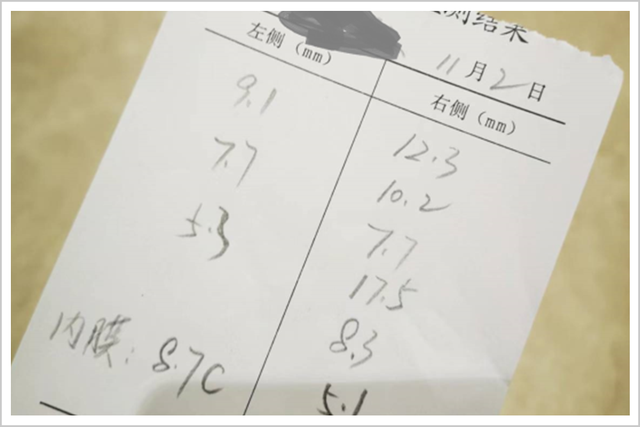 测结果
11月2日
左侧（mm）
右侧（mm）
9.1
7.7
5.3
12.3
10.2
7.7
17.5
8.3
5.1
内膜：8.7C